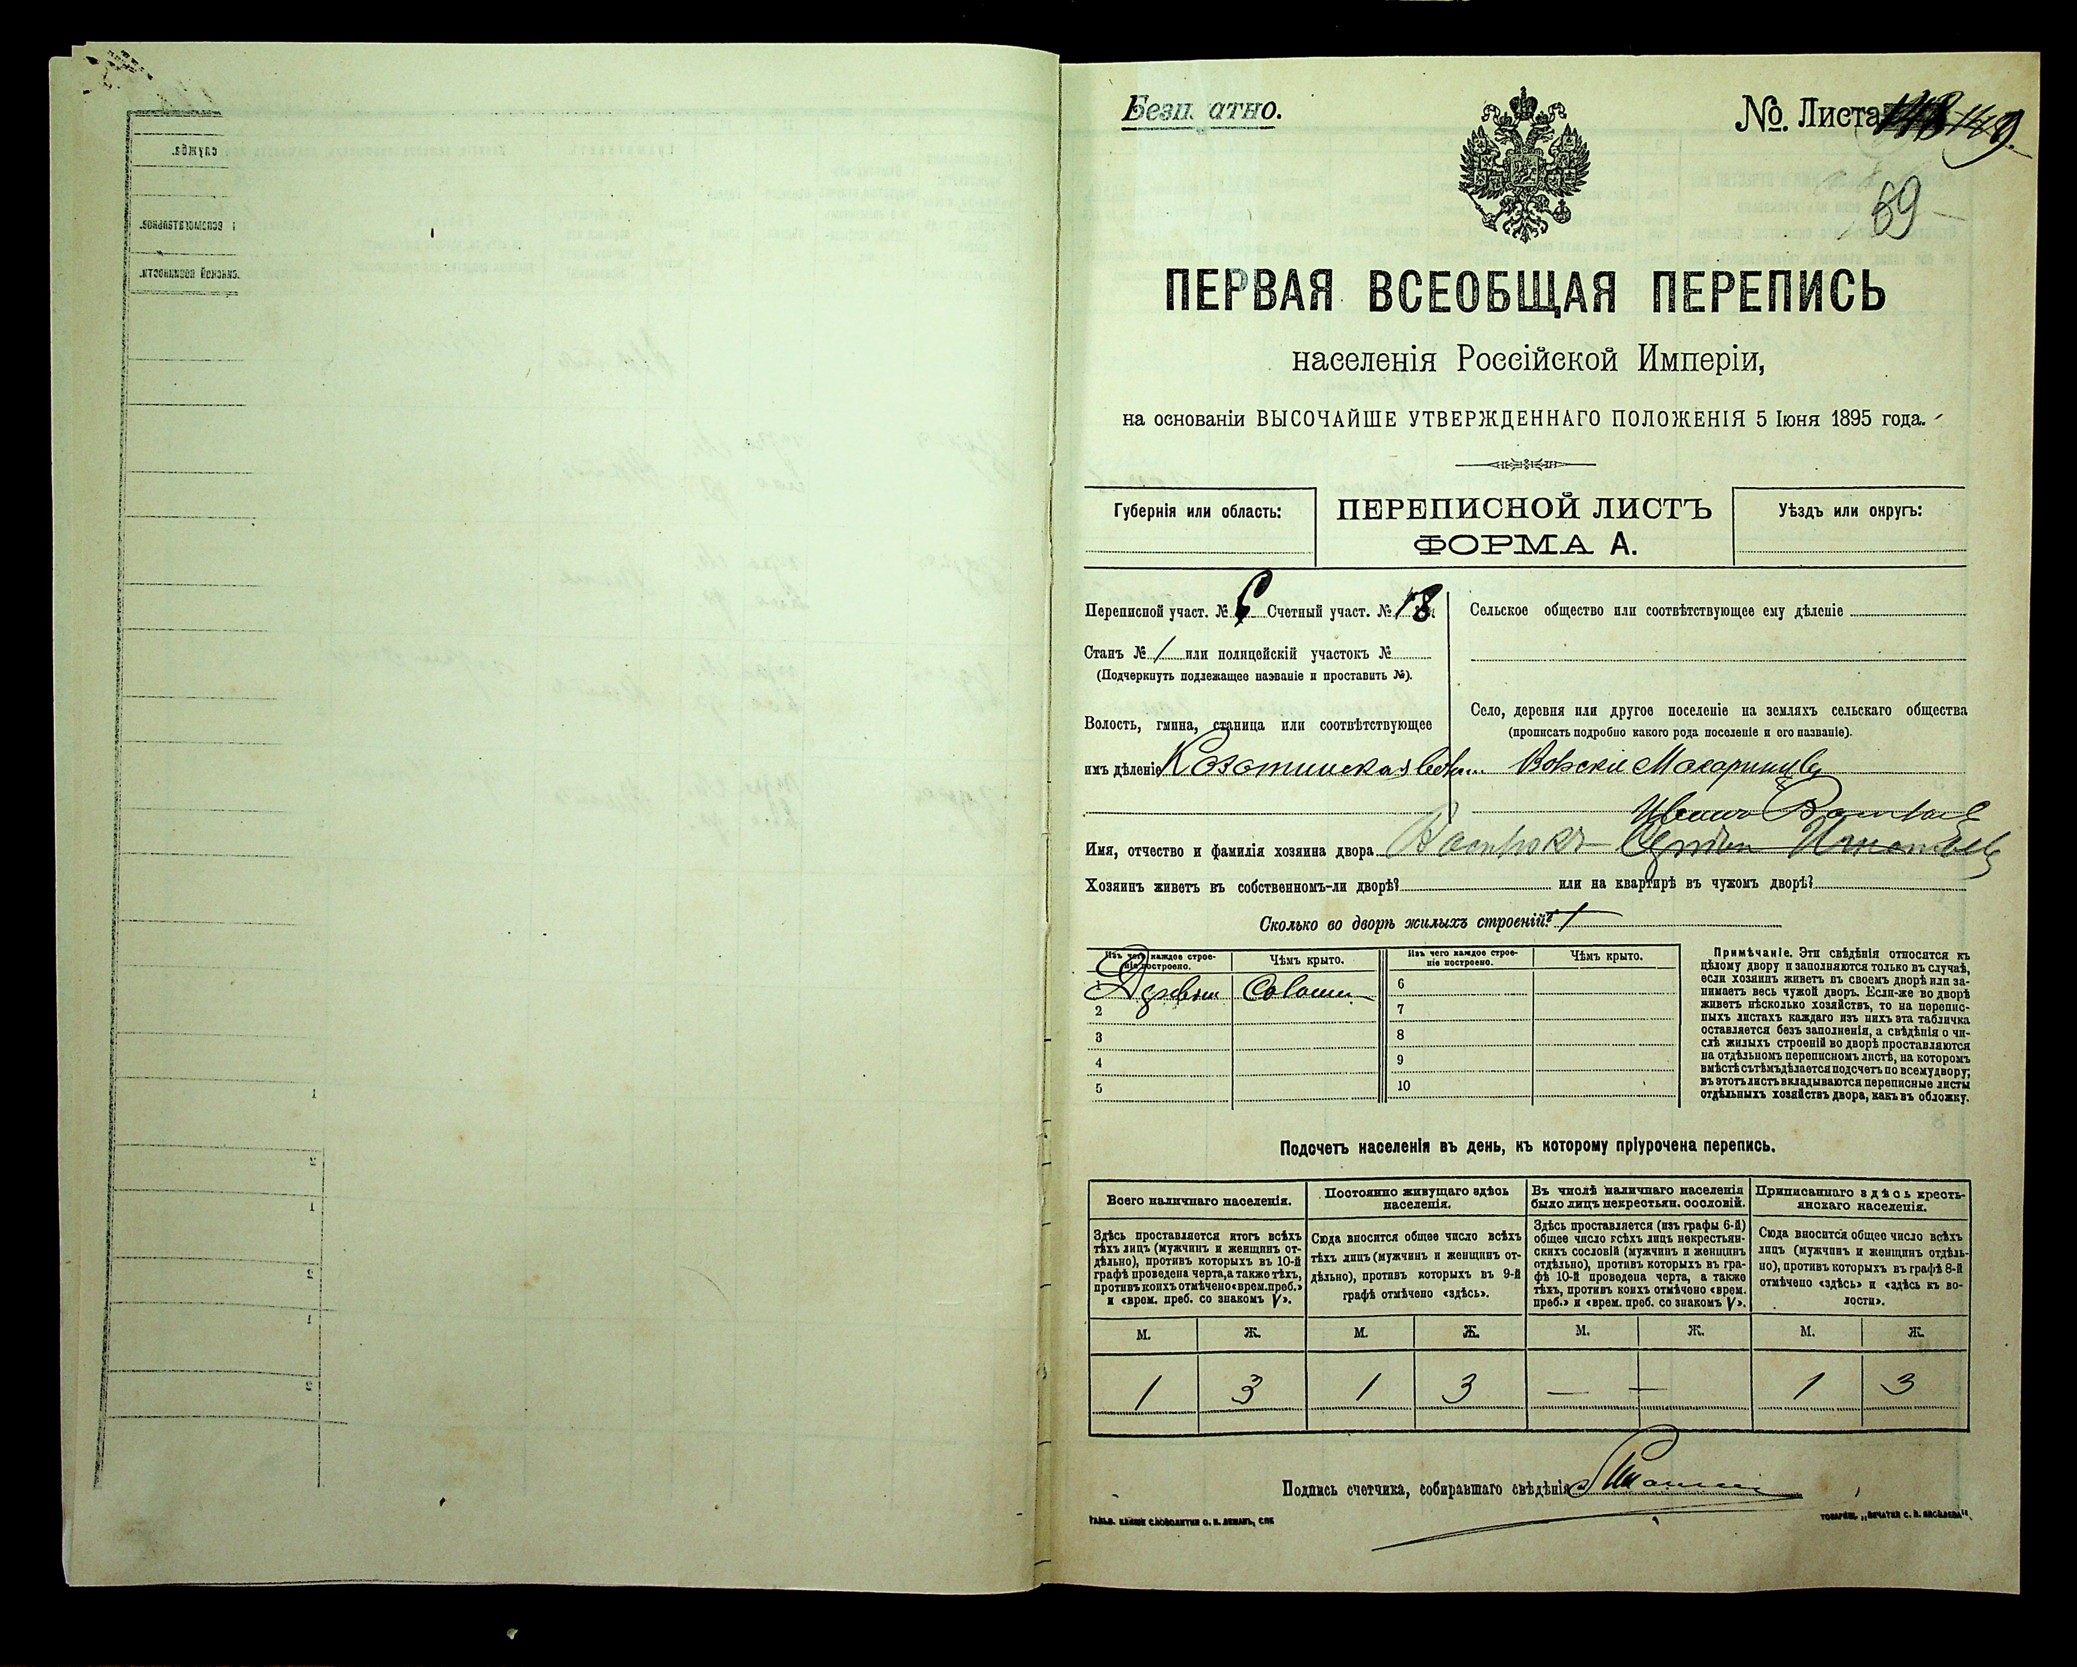 служба.
вспомогательное.
воинской повинности.
Безп атно.
№ Листа 149.
69
ПЕРВАЯ ВСЕОБЩАЯ ПЕРЕПИСЬ
населенія Россійской Имперіи,
на основаніи ВЫСОЧАЙШЕ УТВЕРЖДЕННАГО ПОЛОЖЕНІЯ 5 Іюня 1895 года.
Губернія или область:
ПЕРЕПИСНОЙ ЛИСТЪ
ФОРМА А.
Уѣздъ или округъ:
Переписной участ. № Счетный участ. № 18
Станъ № 1 или полицейскій участокъ №
(Подчеркнуть подлежащее названіе и проставить №).
Волость, гмина, станица или соотвѣтствующее
имъ дѣленіе
Сельское общество или соотвѣтствующее ему дѣленіе
Село, деревня или другое поселеніе на земляхъ сельскаго общества
(прописать подробно какого рода поселеніе и его названіе).
Имя, отчество и фамилія хозяина двора
Хозяинъ живетъ въ собственномъ-ли дворѣ? или на квартирѣ въ чужомъ дворѣ?
Сколько во дворѣ жилыхъ строеній? 1
Изъ чего каждое строе-
ніе построено.
Чѣмъ крыто.
Изъ чего каждое строе-
ніе построено.
Чѣмъ крыто.
1 6
2 7
3 8
4 9
5 10
Примѣчаніе. Эти свѣдѣнія относятся къ
цѣлому двору и заполняются только въ случаѣ,
если хозяинъ живетъ въ своемъ дворѣ или за-
нимаетъ весь чужой дворъ. Если-же во дворѣ
живетъ нѣсколько хозяйствъ, то на перепис-
ныхъ листахъ каждаго изъ нихъ эта табличка
оставляется безъ заполненія, а свѣдѣнія о чи-
слѣ жилыхъ строеній во дворѣ проставляются
на отдѣльномъ переписномъ листѣ, на которомъ
вмѣстѣ съ тѣмъ дѣлается подсчетъ по всему двору;
въ этотъ листъ вкладываются переписные листы
отдѣльныхъ хозяйствъ двора, какъ въ обложку.
Подсчетъ населенія въ день, къ которому пріурочена перепись.
Всего наличнаго населенія.
Здѣсь проставляется итогъ всѣхъ
тѣхъ лицъ (мужчинъ и женщинъ от-
дѣльно), противъ которыхъ въ 10-й
графѣ проведена черта, а также тѣхъ,
противъ коихъ отмѣчено «врем. преб.»
и «врем. преб. со знакомъ V».
Постоянно живущаго здѣсь
населенія.
Сюда вносится общее число всѣхъ
тѣхъ лицъ (мужчинъ и женщинъ от-
дѣльно), противъ которыхъ въ 9-й
графѣ отмѣчено «здѣсь».
Въ числѣ наличнаго населенія
было лицъ некрестьян. сословій.
Здѣсь проставляется (изъ графы 6-й)
общее число всѣхъ лицъ некрестьян-
скихъ сословій (мужчинъ и женщинъ
отдѣльно), противъ которыхъ въ гра-
фѣ 10-й проведена черта, а также
тѣхъ, противъ коихъ отмѣчено «врем.
преб.» и «врем. преб. со знакомъ V».
Приписаннаго здѣсь кресть-
янскаго населенія.
Сюда вносится общее число всѣхъ
лицъ (мужчинъ и женщинъ отдѣль-
но), противъ которыхъ въ графѣ 8-й
отмѣчено «здѣсь» и «здѣсь къ во-
лости».
М. Ж. М. Ж. М. Ж. М. Ж.
1 3 1 3 — — 1 3
Подпись счетчика, собиравшаго свѣдѣнія